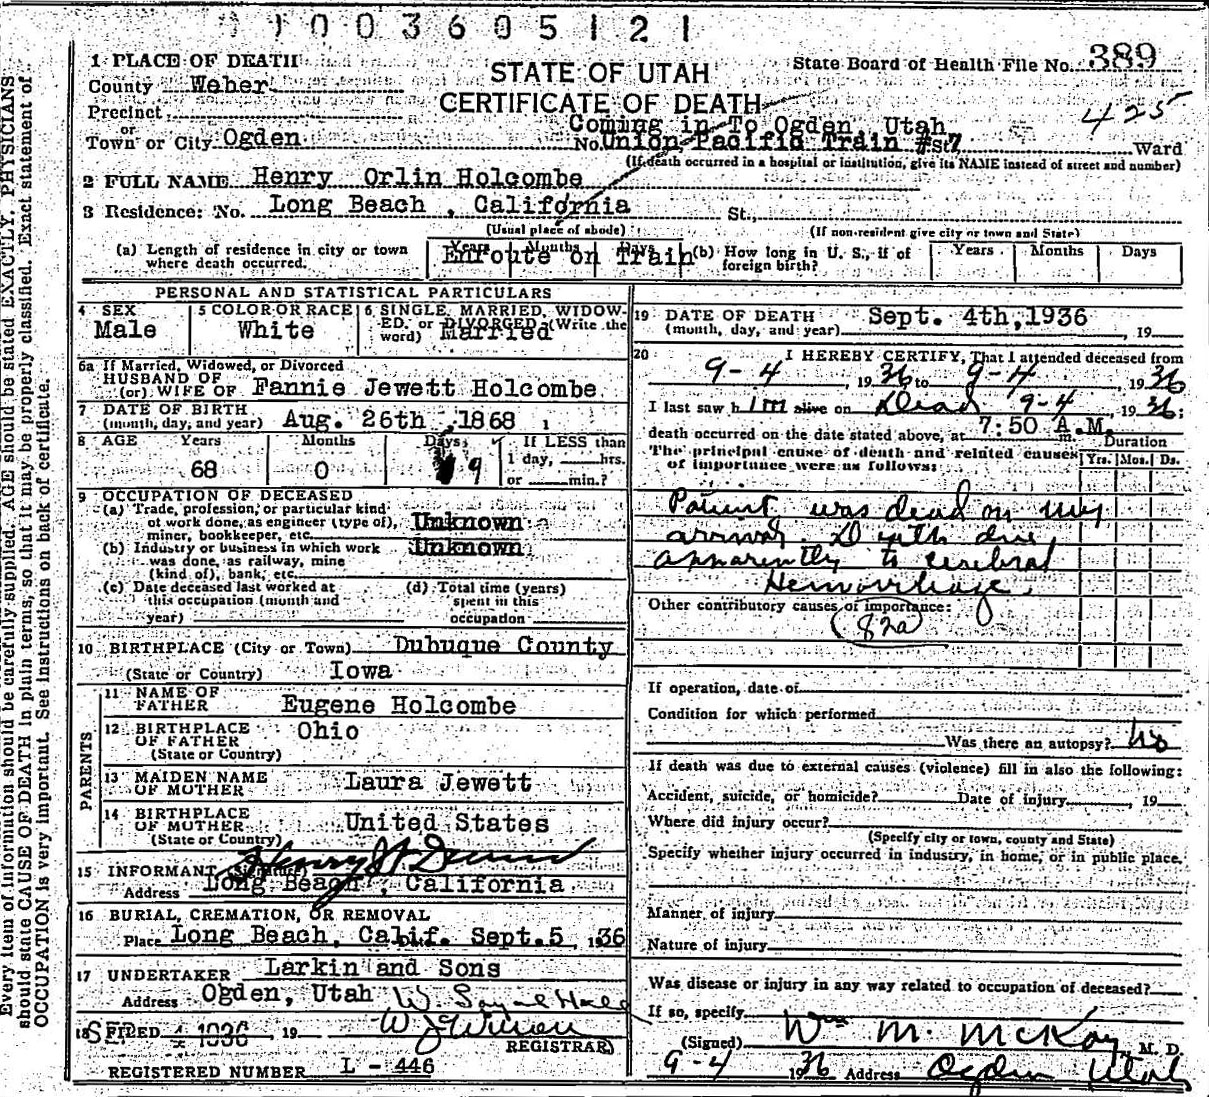 1003605121
389
1 PLACE OF DEATH
STATE OF UTAH
State Board of Health File No. 389
County Weber
CERTIFICATE OF DEATH
425
Precinct
or
Coming in To Ogden, Utah
Town or City Ogden No. Union Pacific Train #7 St. Ward
(If death occurred in a hospital or institution, give its NAME instead of street and number)
2 FULL NAME Henry Orlin Holcombe
3 Residence: No. Long Beach, California St.,
(Usual place of abode) (If non-resident give city or town and State)
(a) Length of residence in city or town where death occurred. Years Months Days Enroute on Train
(b) How long in U. S., if of foreign birth? Years Months Days
PERSONAL AND STATISTICAL PARTICULARS
4 SEX Male
5 COLOR OR RACE White
6 SINGLE, MARRIED, WIDOWED, or DIVORCED (Write the word) Married
6a If Married, Widowed, or Divorced
HUSBAND OF
(or) WIFE OF Fannie Jewett Holcombe
7 DATE OF BIRTH
(month, day, and year) Aug. 26th, 1868
8 AGE Years Months Days If LESS than
68 0 9 1 day, hrs.
or min.?
9 OCCUPATION OF DECEASED
(a) Trade, profession, or particular kind
of work done, as engineer (type of), Unknown
miner, bookkeeper, etc.
(b) Industry or business in which work Unknown
was done, as railway, mine
(kind of), bank, etc.
(c) Date deceased last worked at (d) Total time (years)
this occupation (month and spent in this
year) occupation
10 BIRTHPLACE (City or Town) Dubuque County
(State or Country) Iowa
PARENTS
11 NAME OF
FATHER Eugene Holcombe
12 BIRTHPLACE Ohio
OF FATHER
(State or Country)
13 MAIDEN NAME
OF MOTHER Laura Jewett
14 BIRTHPLACE
OF MOTHER United States
(State or Country)
15 INFORMANT (Signature)
Address Long Beach, California
16 BURIAL, CREMATION, OR REMOVAL
Place Long Beach, Calif. Sept. 5, 36
17 UNDERTAKER Larkin and Sons
Address Ogden, Utah
18 FILED SEP 4 1936, 19
REGISTRAR
REGISTERED NUMBER L - 446
19 DATE OF DEATH Sept. 4th, 1936
(month, day, and year) , 19
20 I HEREBY CERTIFY, That I attended deceased from
9-4, 1936 to 9-4, 1936
I last saw him alive on Dead 9-4, 1936;
death occurred on the date stated above, at 7:50 A.M. m.
Duration
The principal cause of death and related causes Yrs. Mos. Ds.
of importance were as follows:
Patient was dead on my
arrival. Death due
apparently to cerebral
Hemorrhage.
Other contributory causes of importance:
82a
If operation, date of
Condition for which performed
Was there an autopsy? No
If death was due to external causes (violence) fill in also the following:
Accident, suicide, or homicide? Date of injury , 19
Where did injury occur?
(Specify city or town, county and State)
Specify whether injury occurred in industry, in home, or in public place.
Manner of injury
Nature of injury
Was disease or injury in any way related to occupation of deceased?
If so, specify
(Signed) Wm M. McKay, M. D.
9-4 1936 Address Ogden Utah
Every item of information should be carefully supplied. AGE should be stated EXACTLY. PHYSICIANS
should state CAUSE OF DEATH in plain terms, so that it may be properly classified. Exact statement of
OCCUPATION is very important. See instructions on back of certificate.